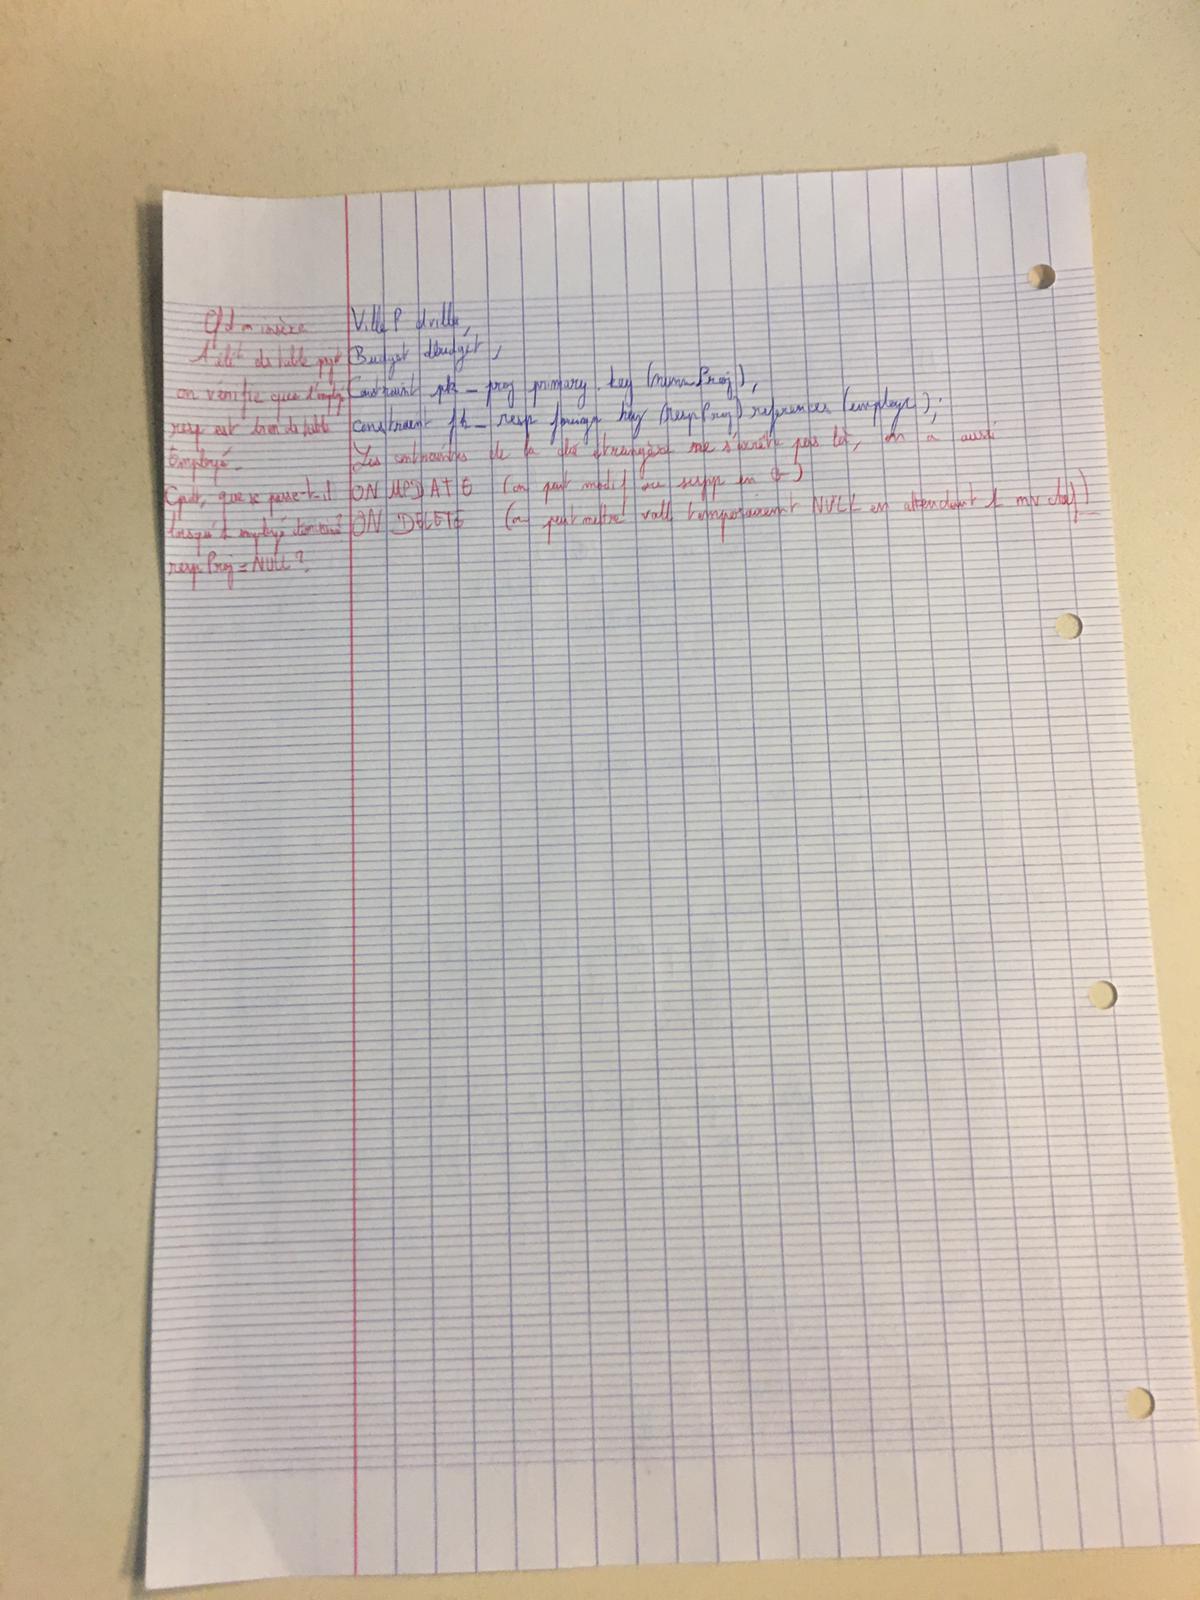 Qd on insère
1 élét ds table pjt
on vérifie que l'emplé
resp est bien ds table
Employé.
Cpdt, que se passe-t-il
lorsqu'1 employé
respProj = NULL ?
VilleP dville,
Budget dbudget,
Constraint pk_proj primary key (numProj),
constraint fk_resp foreign key (respProj) references (employe);
Les contraintes de la clé étrangère ne s'arrête pas là, on a aussi
ON UPDATE (on peut modif ou supp en
ON DELETE (on peut mettre temporairement NULL en attendant 1 nv chef)